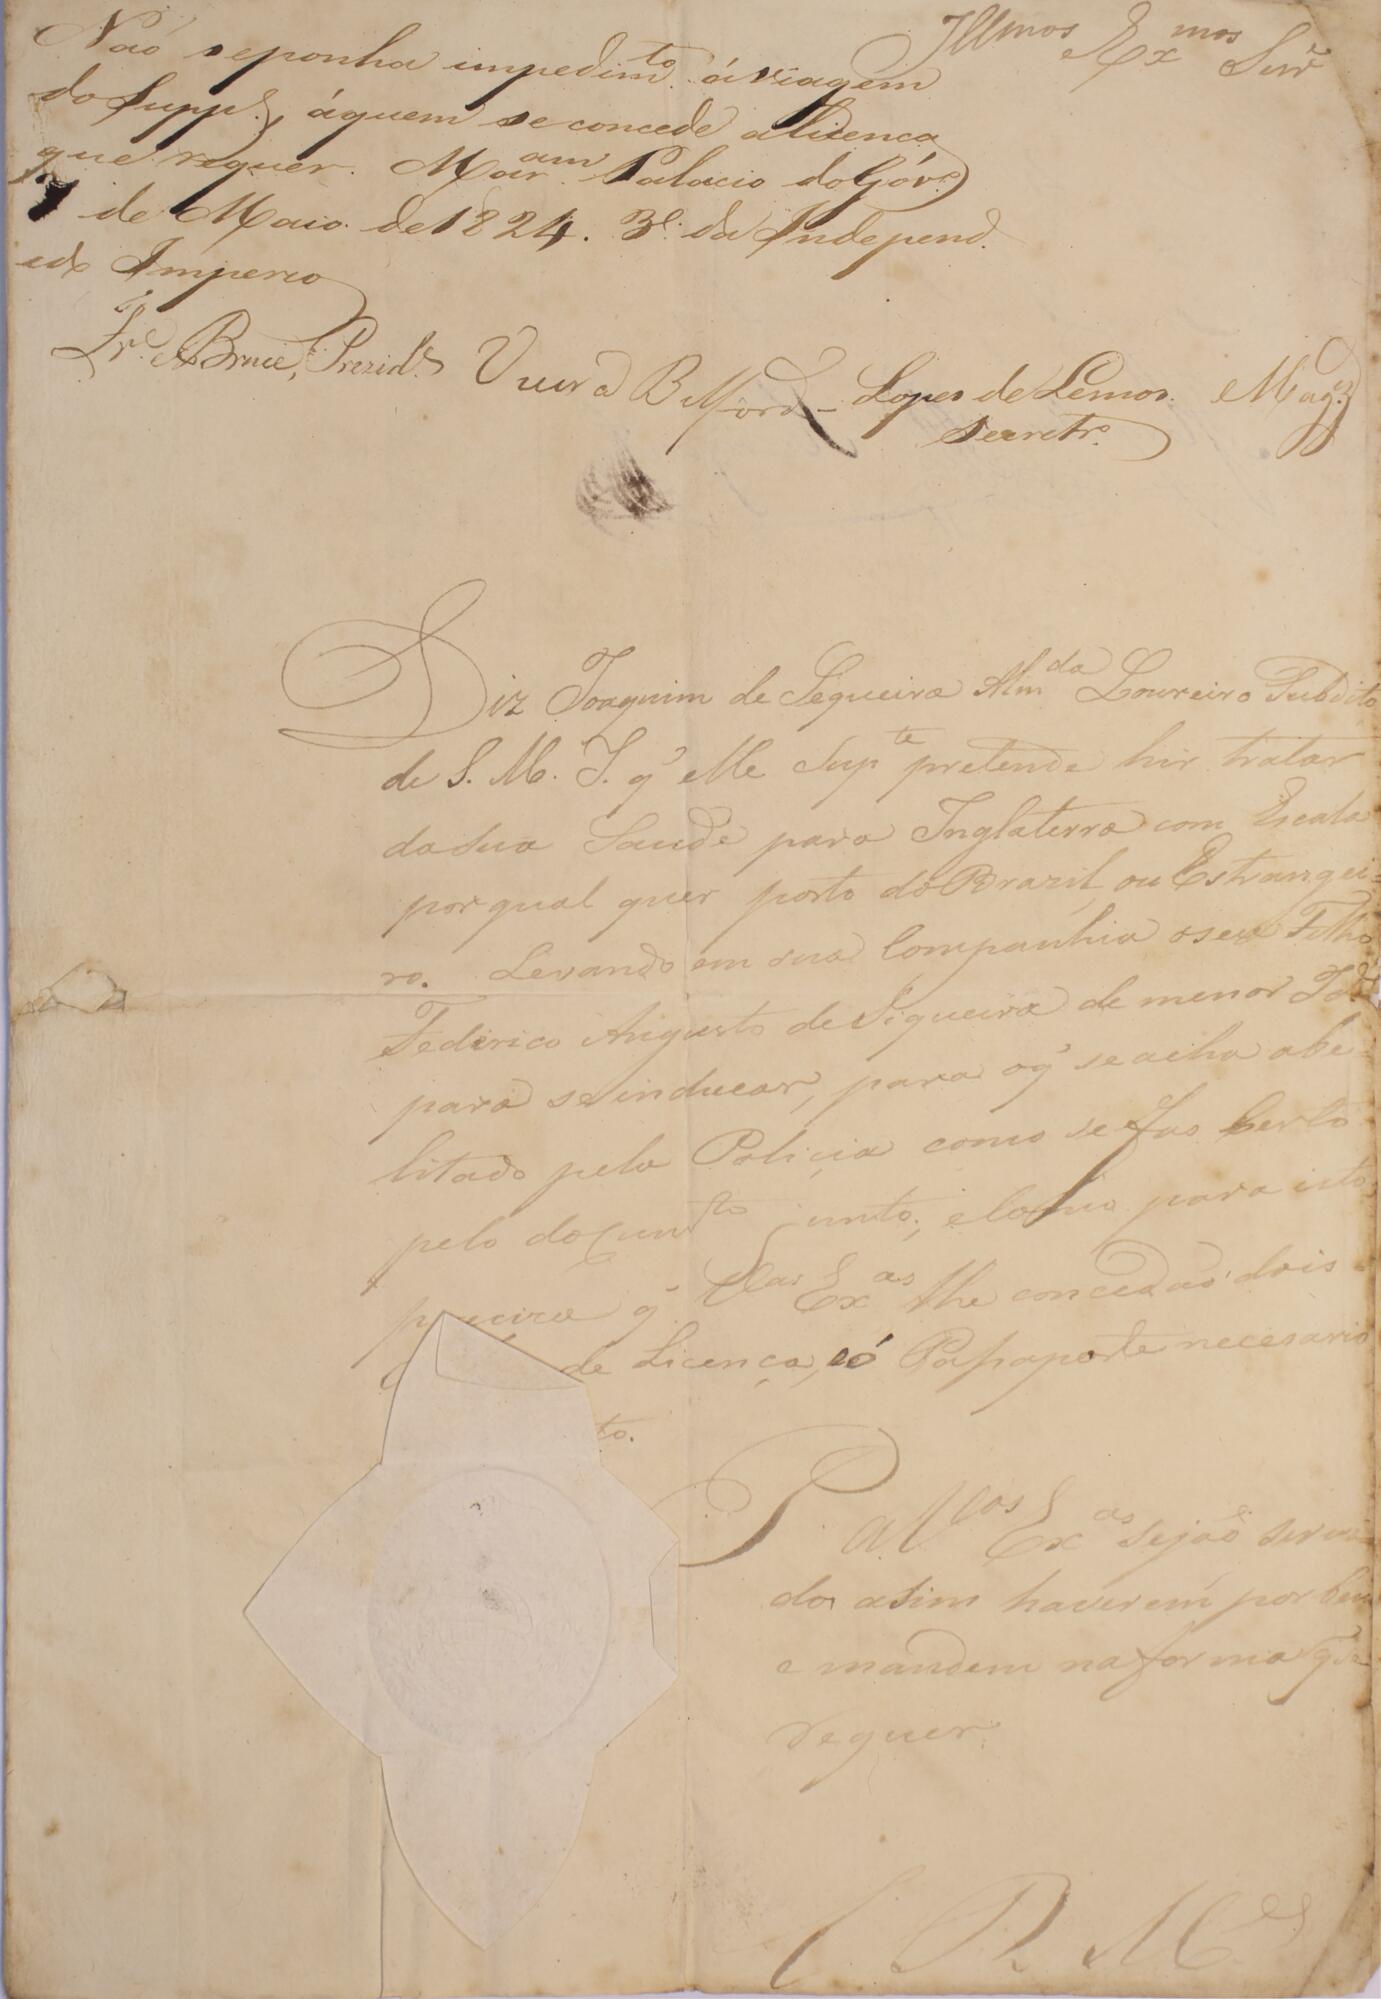 Illmos Exmos Snr
Naó seponha impedimto. áviagem
do Suppe., áquem se concede alicença
que requer. Maram. Palacio do Góvo.
7 de Maio de 1824. 3º. da Independ.
edo Imperio
Bruce, Prezide. Vieira Belford Lopes de Lemos. Magz.
Secretro.
Diz Joaquim de Sequeira Almda Loureiro Subdito
de S. M. I. q' elle Supte pretende hir tratar
dasua Saude para Inglaterra com Escala
porqual quer porto do Brazil, ou Estrangei=
ro. Levando em sua Companhia oseu Filho
Federico Augusto de Siqueira de menor Ide
para seinducar, para oq' seacha abe
litado pela Policia como sefas Certo
pelo docunto junto; e Como para isto
q' Vas Exas lhe concedaó dois
de Licença, eó Passaporte necesario
to.
P. a Vas Exas sejaó servi
dos asim haverem por bem
e mandem naforma que
requer.
E R Mce